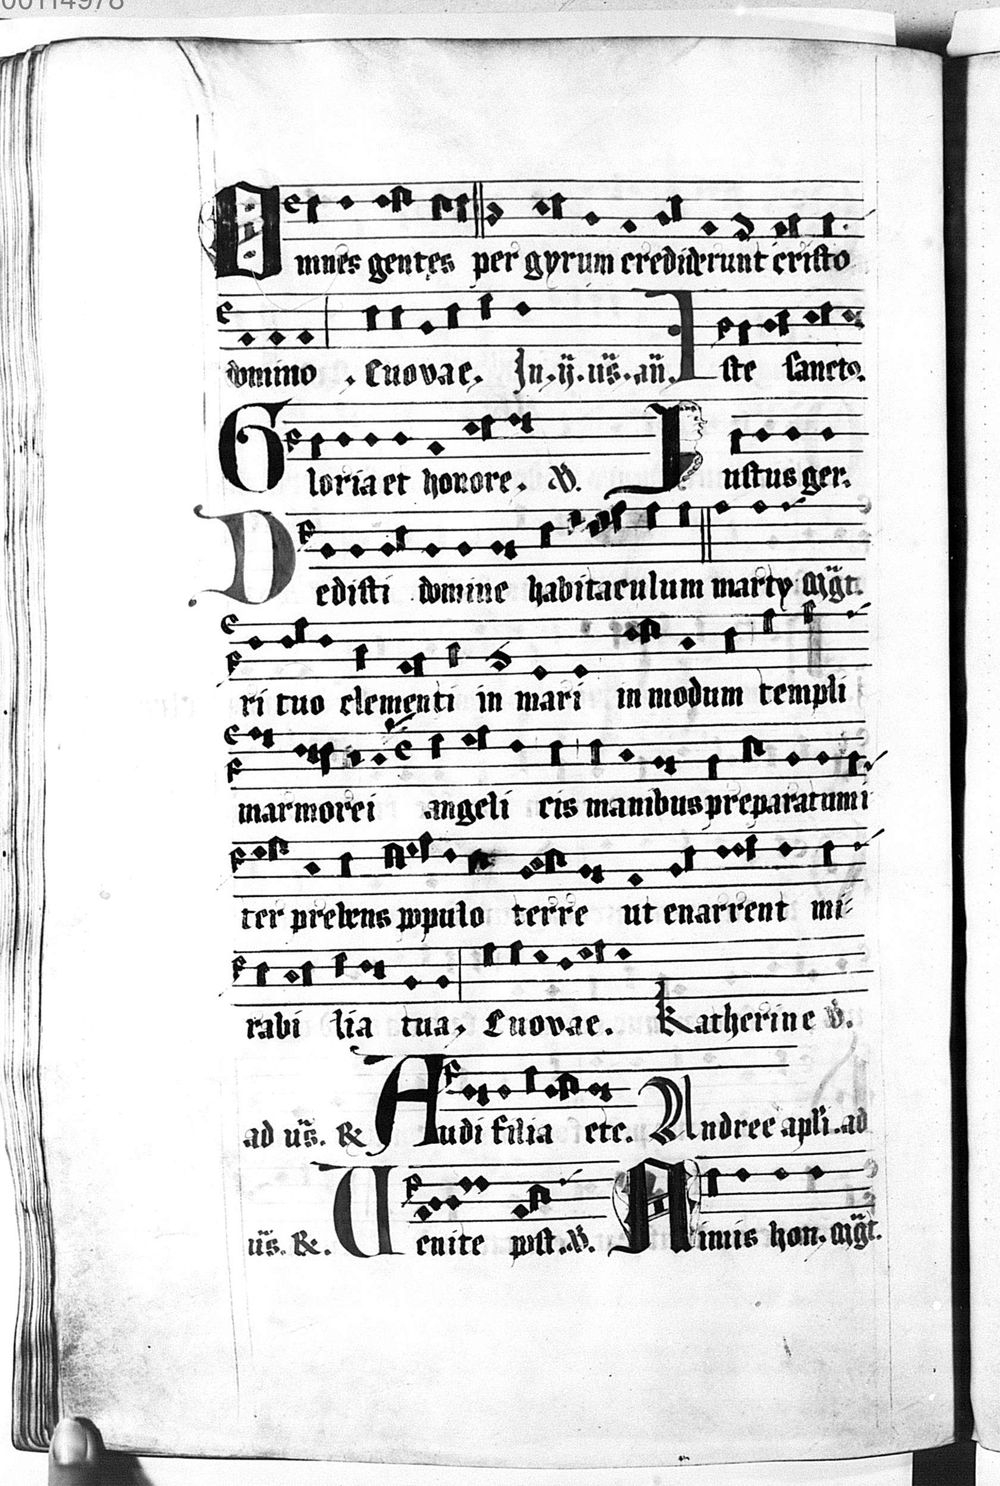 00114978
Omnes gentes per gyrum crediderunt cristo
domino . Euovae. In .ij. us̈. añ. Iste sancto.
Gloria et honore. V. Iustus ger.
Dedisti domine habitaculum marty Mg̈t.
ri tuo clementi in mari in modum templi
marmorei angeli cis manibus preparatum i
ter prebens populo terre ut enarrent mi
rabi lia tua, Euovae. Katherine v.
ad us̈. R. Audi filia etc. Andree apli. ad
us̈. R. Venite post. V. Nimis hon. Mg̈t.